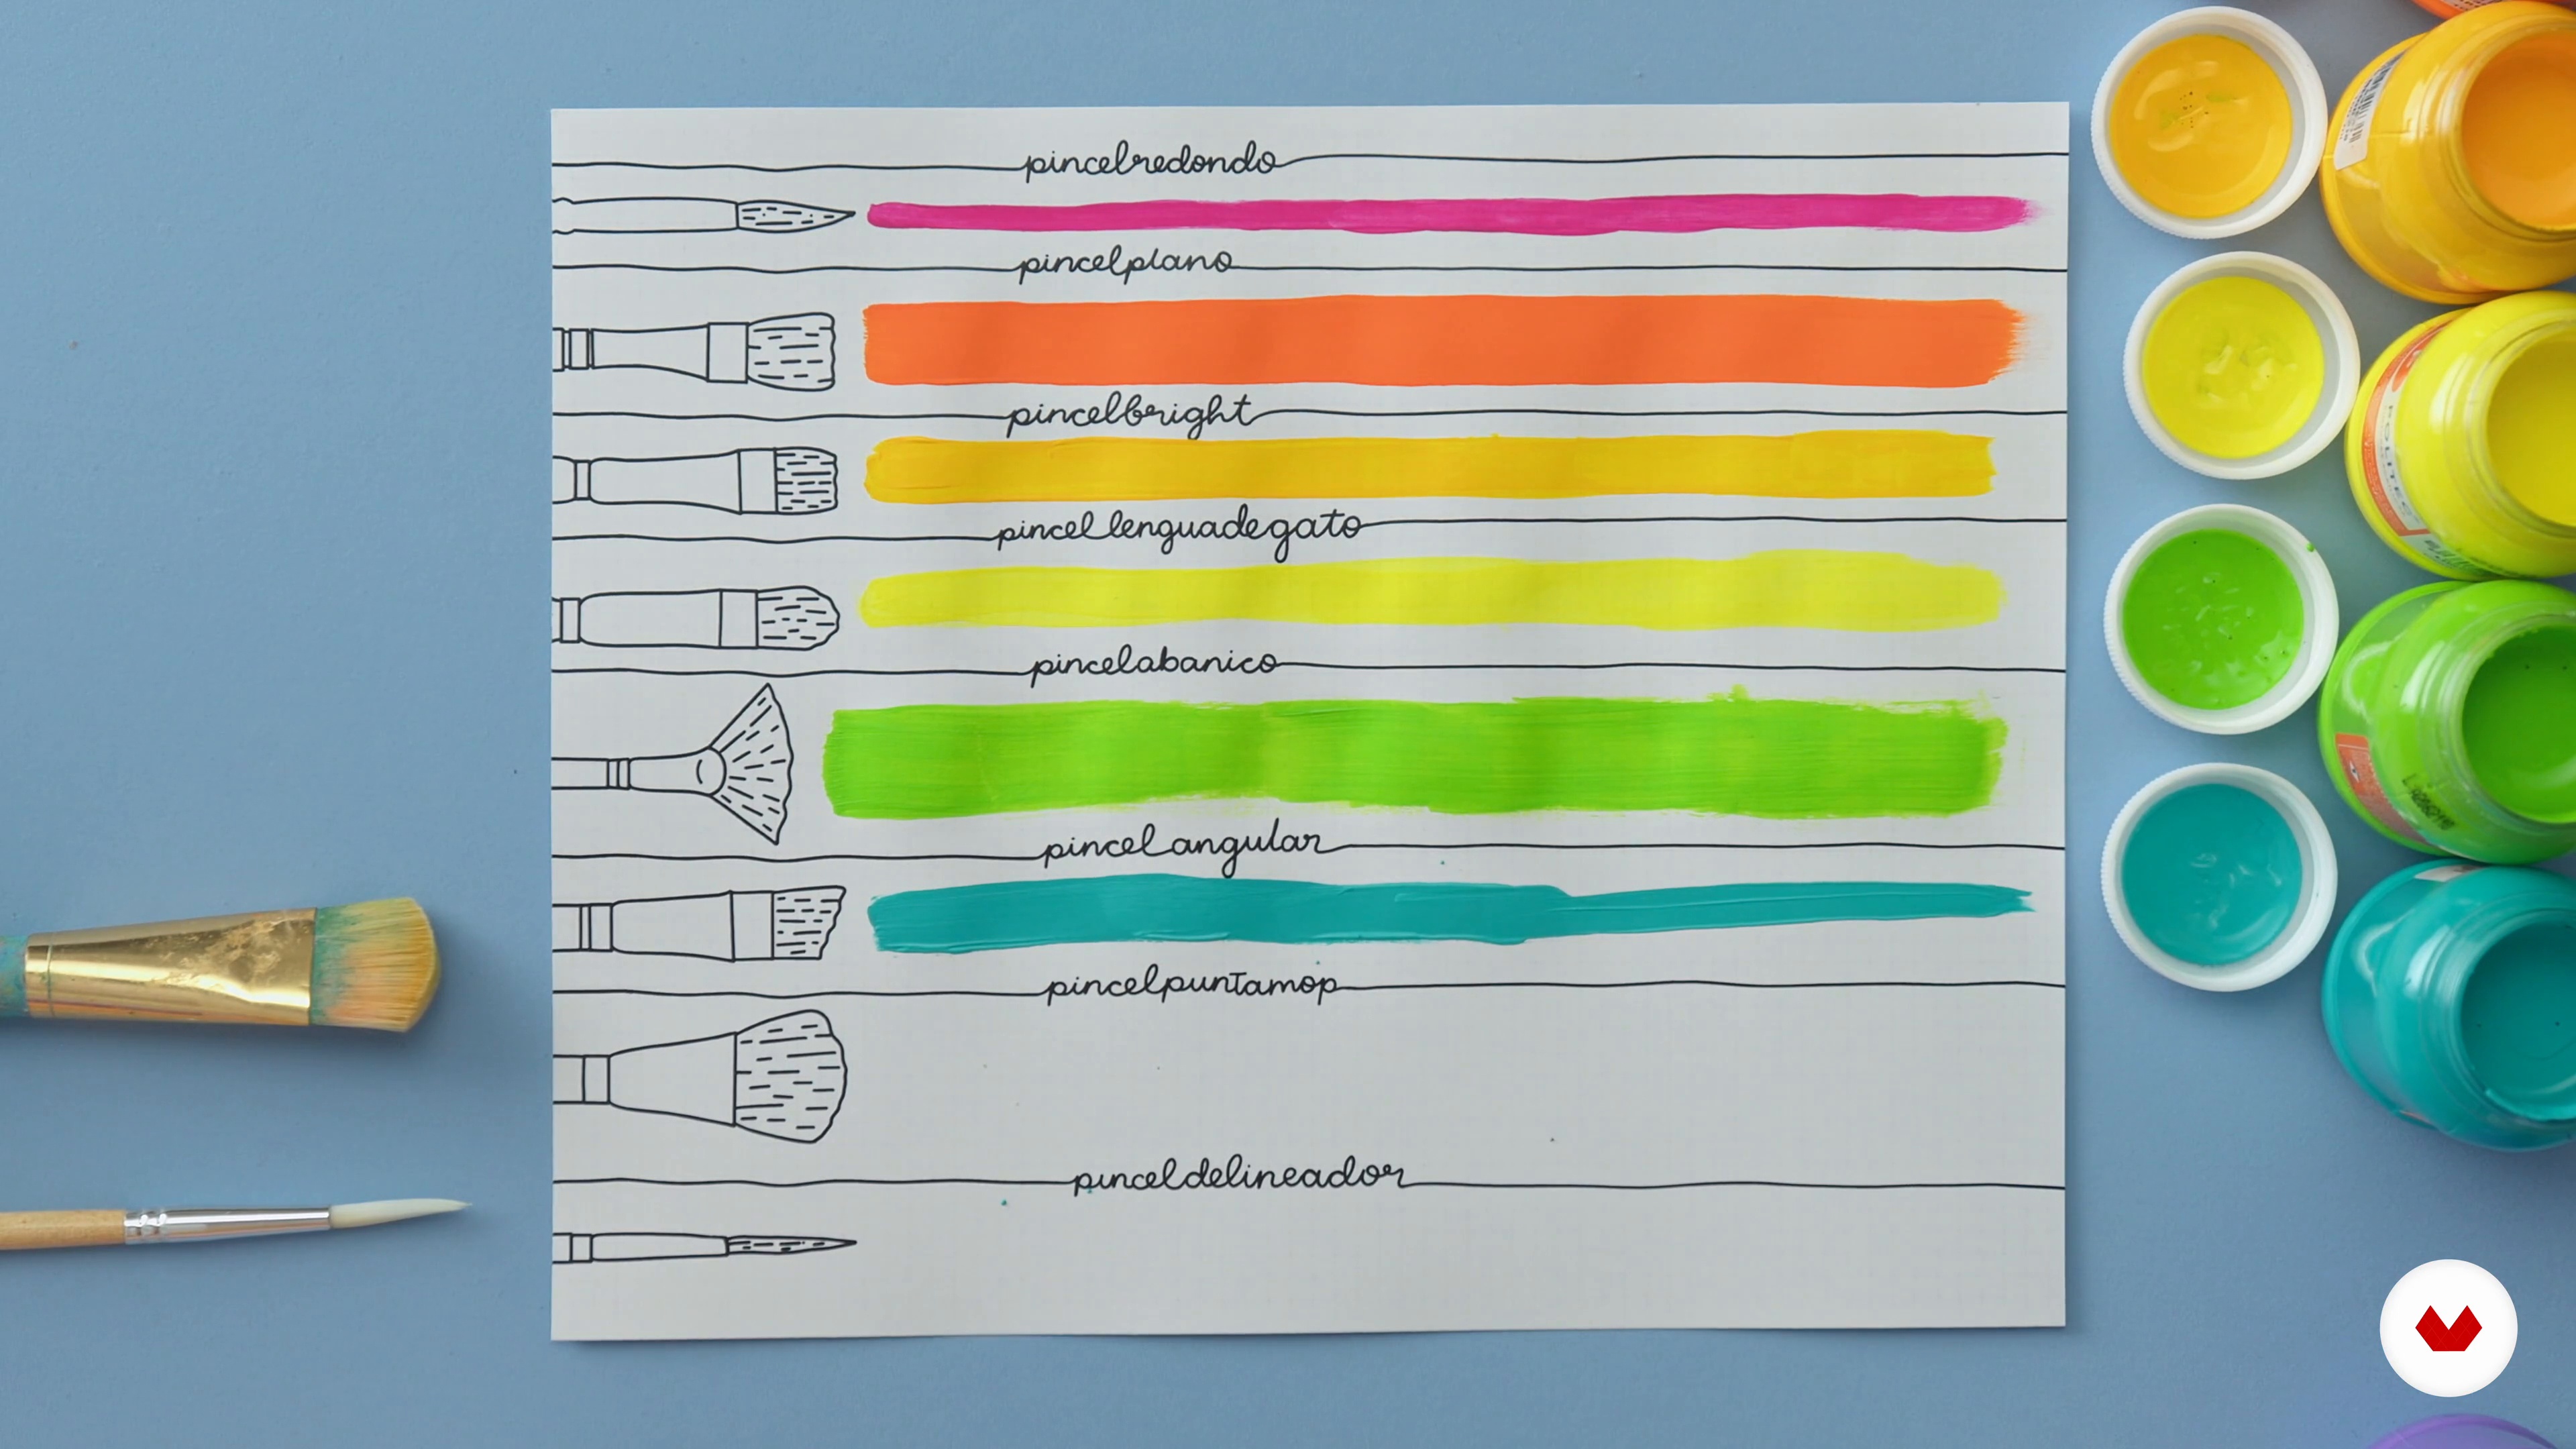 pincel redondo
pincel plano
pincel bright
pincel lengua de gato
pincel abanico
pincel angular
pincel punta mop
pincel delineador